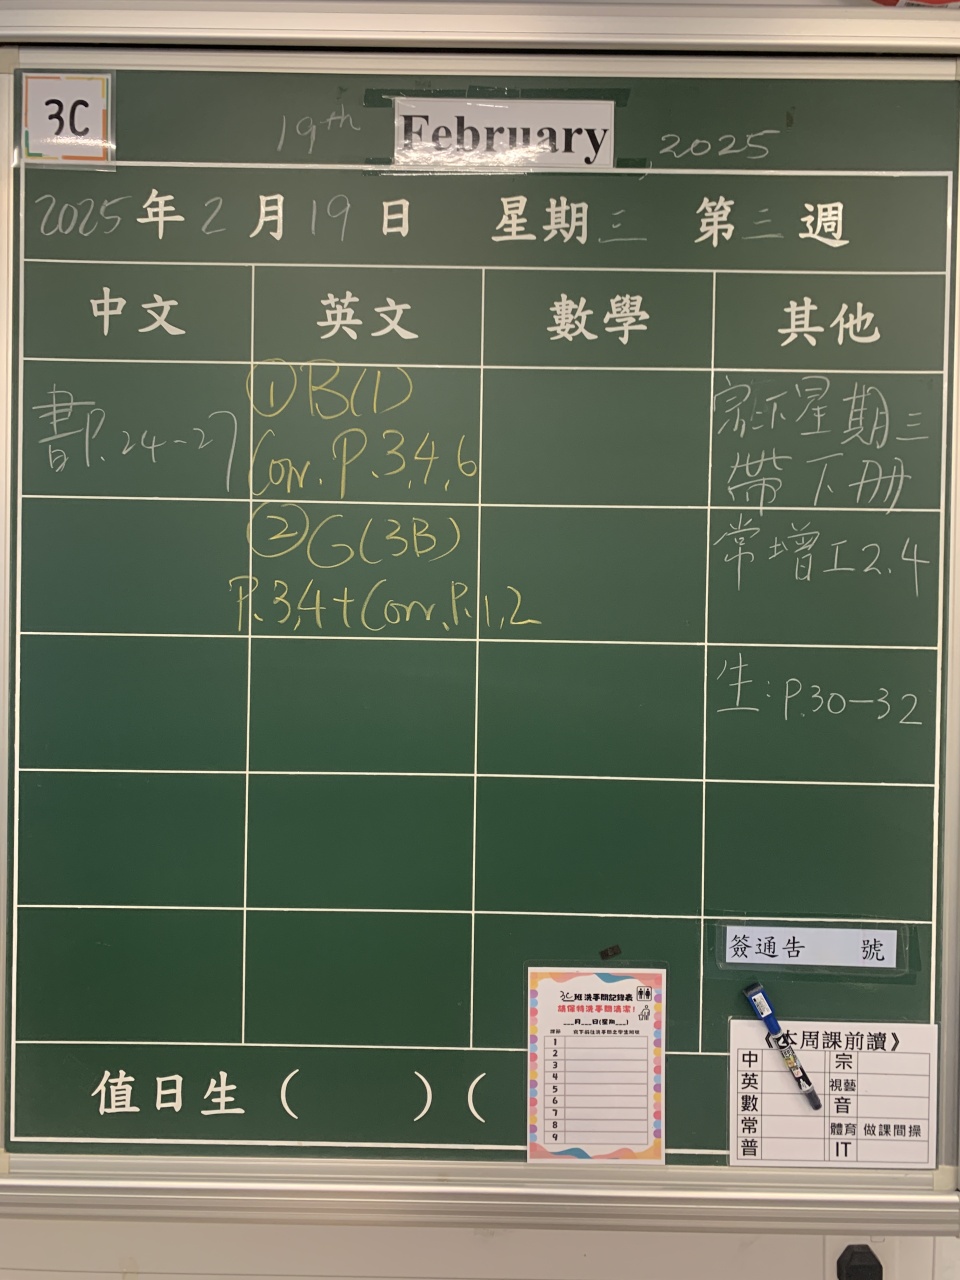 3C
19th February, 2025
2025年2月19日 星期三 第三週
中文 英文 數學 其他
書P.24-27
①B(1)
Corr. P.3,4,6
②G(3B)
P.3,4+Corr.P.1,2
宗:下星期三
帶下冊
常增工2.4
生:P.30-32
簽通告 號
3C班洗手間記錄表
請保持洗手間清潔!
___月___日(星期___)
1
2
3
4
5
6
7
8
9
《本周課前讀》
中 宗
英 視藝
數 音
常 體育 做課間操
普 IT
值日生( )(